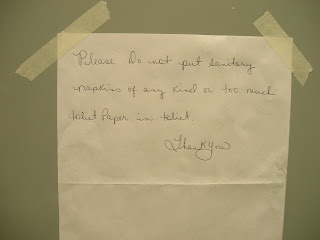 Please Do not put sanitary
napkins of any kind or too much
toliet Paper in toliet.
Thank You